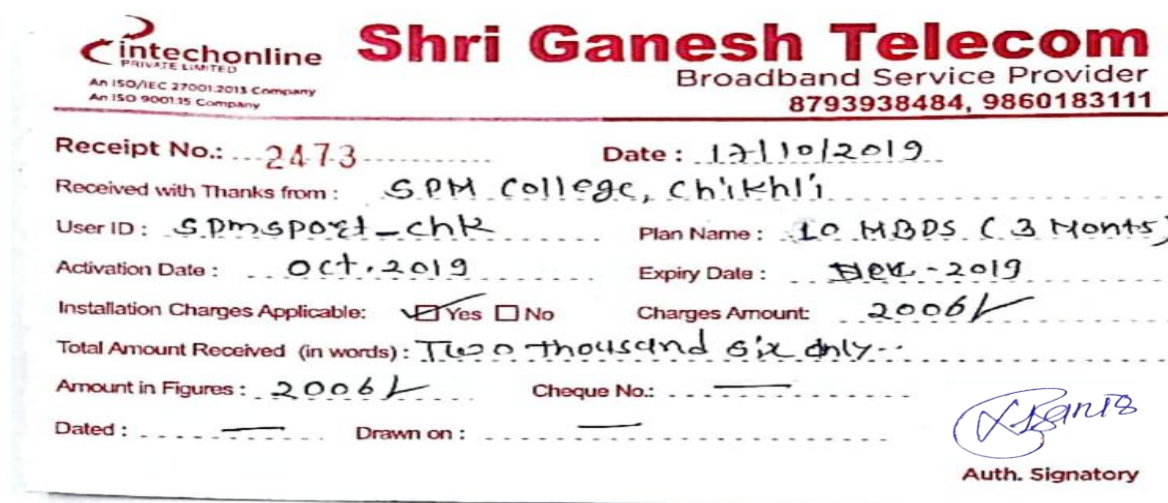 intechonline
PRIVATE LIMITED
An ISO/IEC 27001:2013 Company
An ISO 9001:15 Company
Shri Ganesh Telecom
Broadband Service Provider
8793938484, 9860183111
Receipt No.: 2473 Date : 17/10/2019
Received with Thanks from : SPM College, Chikhli
User ID : SPmsport_chk Plan Name : 10 MBPS (3 Monts)
Activation Date : Oct.2019 Expiry Date : -2019
Installation Charges Applicable: Yes No Charges Amount: 2006/-
Total Amount Received (in words) : Two thousand six only
Amount in Figures : 2006/- Cheque No.: —
Dated : — Drawn on : —
Auth. Signatory